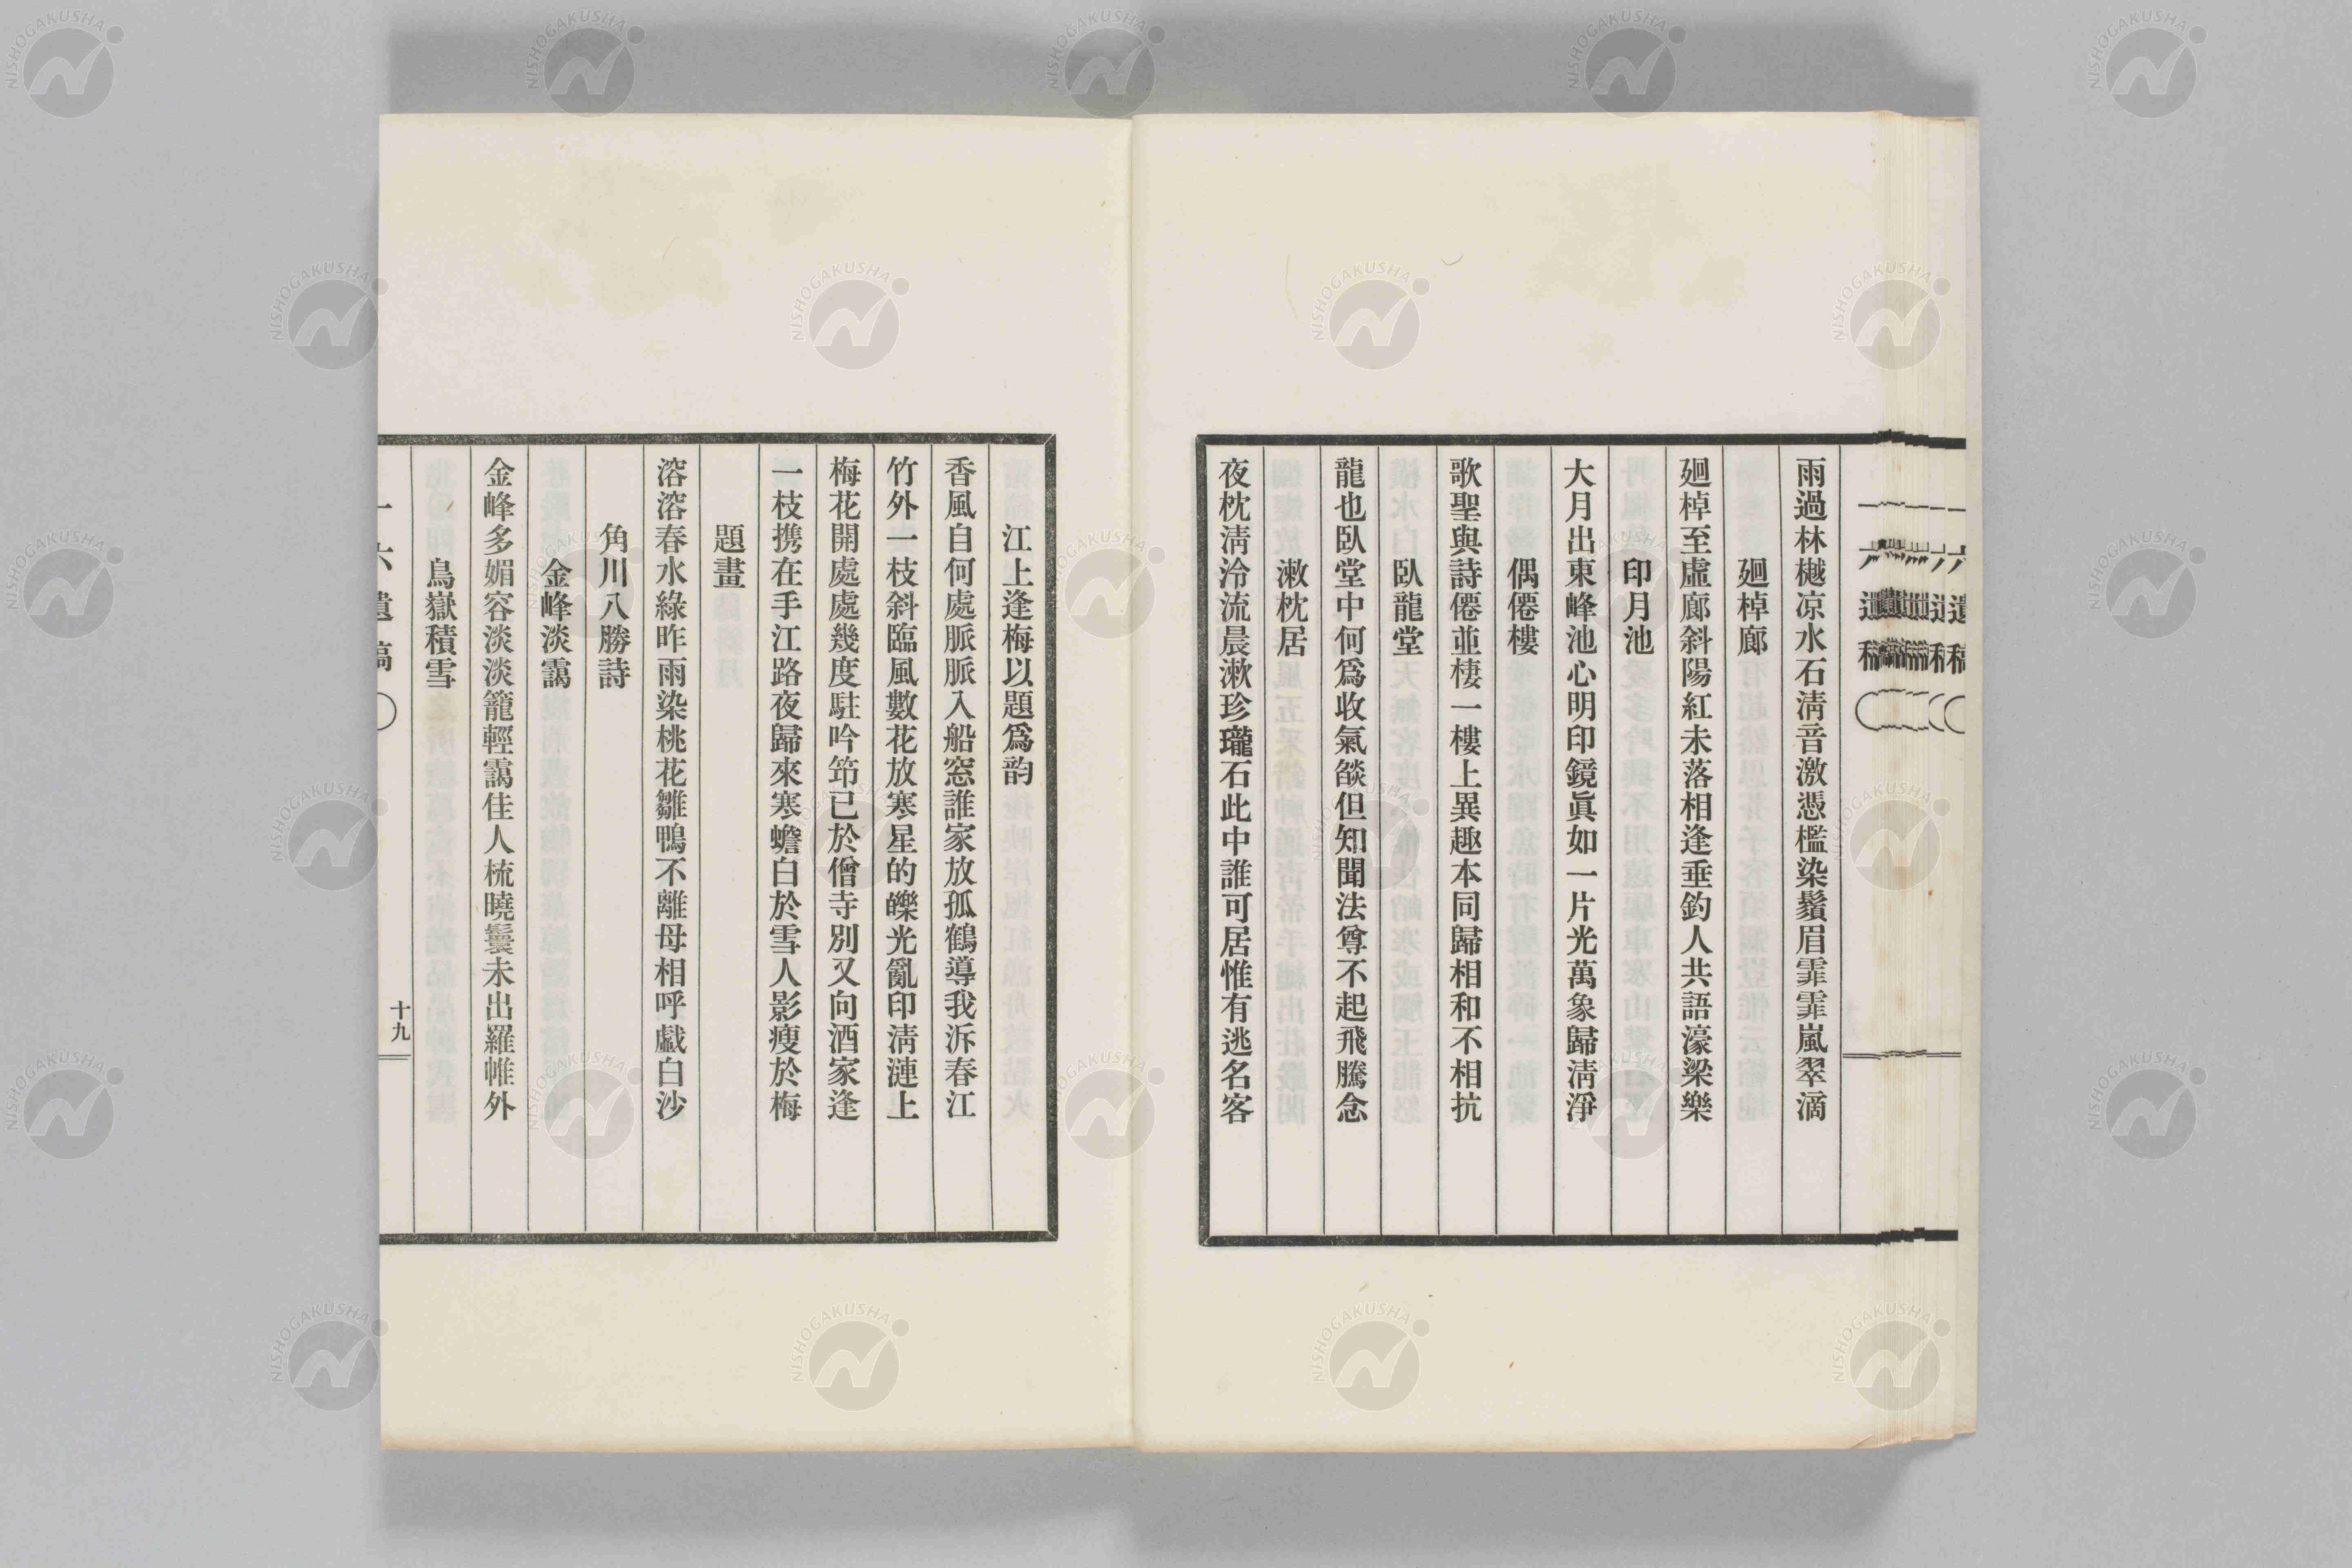 雨過林樾凉水石淸音激憑檻染鬚眉霏霏嵐翠滴
廻棹廊
廻棹至虛廊斜陽紅未落相逢垂釣人共語濠梁樂
印月池
大月出東峰池心明印鏡眞如一片光萬象歸淸淨
偶僊樓
歌聖與詩僊並棲一樓上異趣本同歸相和不相抗
臥龍堂
龍也臥堂中何爲收氣燄但知聞法尊不起飛騰念
漱枕居
夜枕淸泠流晨漱珍瓏石此中誰可居惟有逃名客
江上逢梅以題爲韵
香風自何處脈脈入船窓誰家放孤鶴導我泝春江
竹外一枝斜臨風數花放寒星的皪光亂印淸漣上
梅花開處處幾度駐吟笻已於僧寺別又向酒家逢
一枝携在手江路夜歸來寒蟾白於雪人影瘦於梅
題畫
溶溶春水綠昨雨染桃花雛鴨不離母相呼戲白沙
角川八勝詩
金峰淡靄
金峰多媚容淡淡籠輕靄佳人梳曉鬟未出羅帷外
鳥嶽積雪
一六遺稿〇
十九
NISHOGAKUSHA